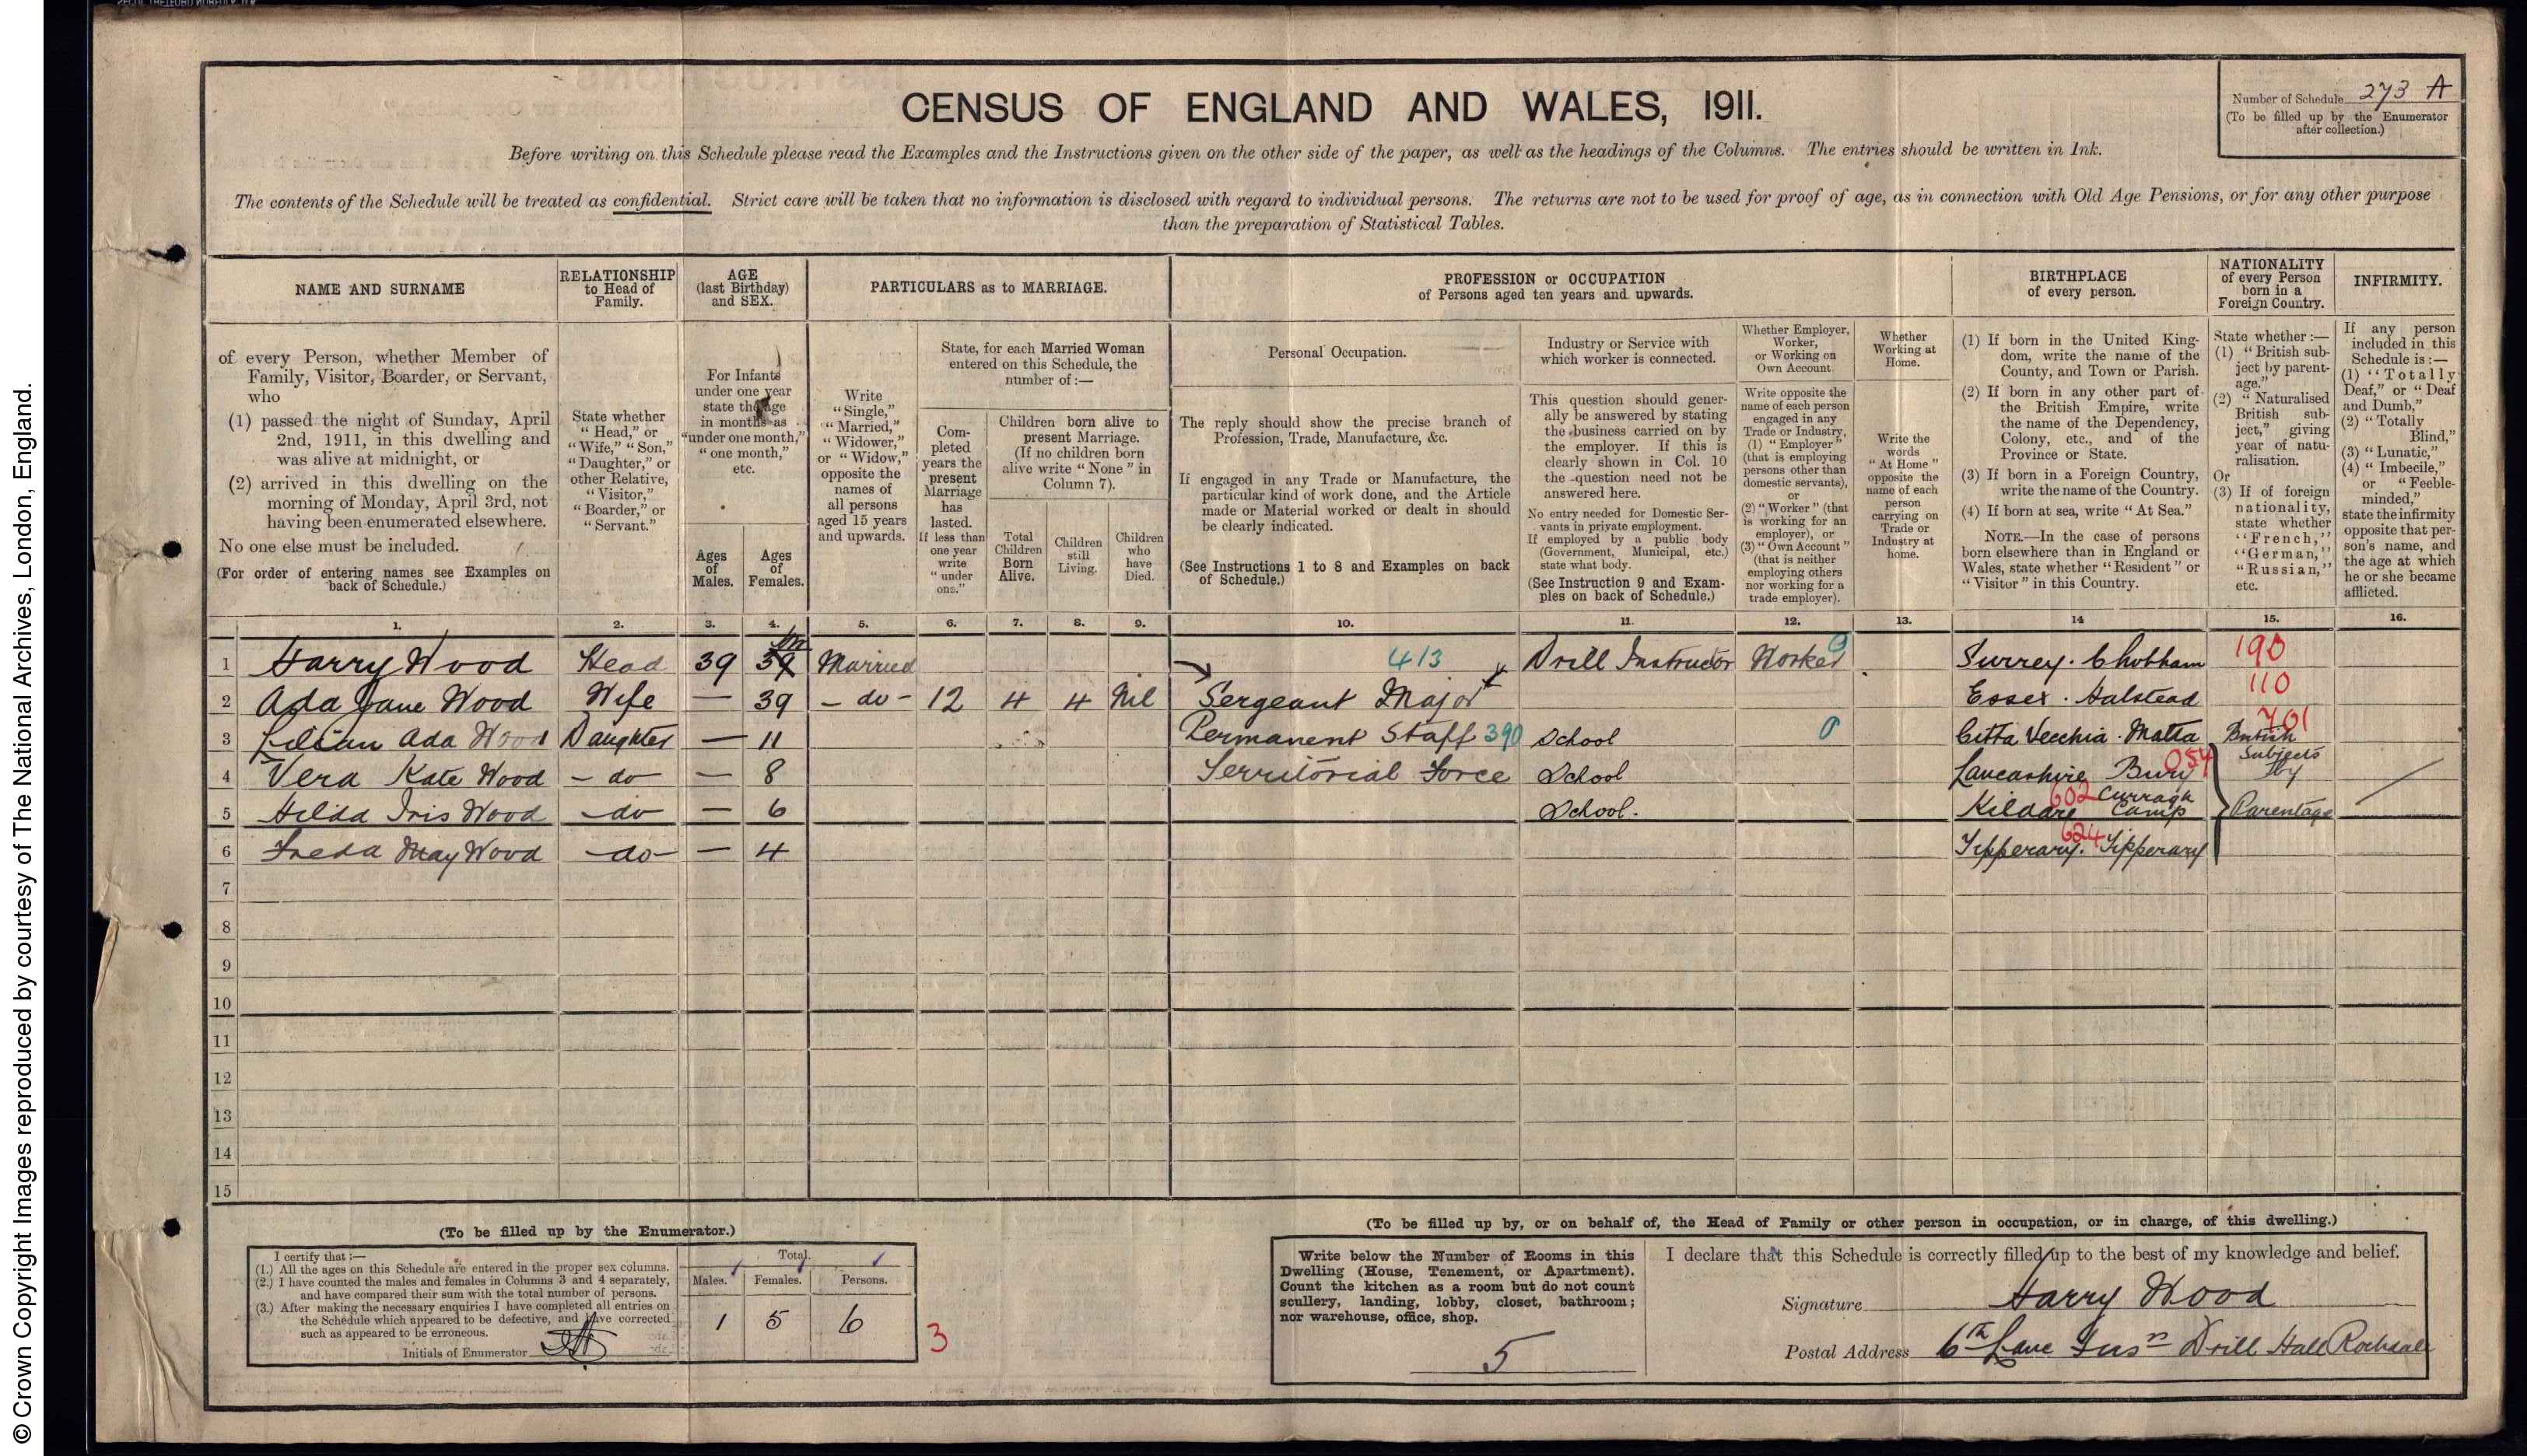 CENSUS OF ENGLAND AND WALES, 1911.
Number of Schedule 273 A
(To be filled up by the Enumerator
after collection.)
Before writing on this Schedule please read the Examples and the Instructions given on the other side of the paper, as well as the headings of the Columns. The entries should be written in Ink.
The contents of the Schedule will be treated as confidential. Strict care will be taken that no information is disclosed with regard to individual persons. The returns are not to be used for proof of age, as in connection with Old Age Pensions, or for any other purpose
than the preparation of Statistical Tables.
NAME AND SURNAME
RELATIONSHIP
to Head of
Family.
AGE
(last Birthday)
and SEX.
PARTICULARS as to MARRIAGE.
PROFESSION or OCCUPATION
of Persons aged ten years and upwards.
BIRTHPLACE
of every person.
NATIONALITY
of every Person
born in a
Foreign Country.
INFIRMITY.
of every Person, whether Member of
Family, Visitor, Boarder, or Servant,
who
(1) passed the night of Sunday, April
2nd, 1911, in this dwelling and
was alive at midnight, or
(2) arrived in this dwelling on the
morning of Monday, April 3rd, not
having been enumerated elsewhere.
No one else must be included.
(For order of entering names see Examples on
back of Schedule.)
State whether
"Head," or
"Wife," "Son,"
"Daughter," or
other Relative,
"Visitor,"
"Boarder," or
"Servant."
For Infants
under one year
state the age
in months as
"under one month,"
"one month,"
etc.
Ages
of
Males.
Ages
of
Females.
Write
"Single,"
"Married,"
"Widower,"
or "Widow,"
opposite the
names of
all persons
aged 15 years
and upwards.
State, for each Married Woman
entered on this Schedule, the
number of:—
Com-
pleted
years the
present
Marriage
has
lasted.
If less than
one year
write
"under
one."
Children born alive to
present Marriage.
(If no children born
alive write "None" in
Column 7).
Total
Children
Born
Alive.
Children
still
Living.
Children
who
have
Died.
Personal Occupation.
The reply should show the precise branch of
Profession, Trade, Manufacture, &c.
If engaged in any Trade or Manufacture, the
particular kind of work done, and the Article
made or Material worked or dealt in should
be clearly indicated.
(See Instructions 1 to 8 and Examples on back
of Schedule.)
Industry or Service with
which worker is connected.
This question should gener-
ally be answered by stating
the business carried on by
the employer. If this is
clearly shown in Col. 10
the question need not be
answered here.
No entry needed for Domestic Ser-
vants in private employment.
If employed by a public body
(Government, Municipal, etc.)
state what body.
(See Instruction 9 and Exam-
ples on back of Schedule.)
Whether Employer,
Worker,
or Working on
Own Account.
Write opposite the
name of each person
engaged in any
Trade or Industry,
(1) "Employer"
(that is employing
persons other than
domestic servants),
or
(2) "Worker" (that
is working for an
employer), or
(3) "Own Account"
(that is neither
employing others
nor working for a
trade employer).
Whether
Working at
Home.
Write the
words
"At Home"
opposite the
name of each
person
carrying on
Trade or
Industry at
home.
(1) If born in the United King-
dom, write the name of the
County, and Town or Parish.
(2) If born in any other part of
the British Empire, write
the name of the Dependency,
Colony, etc., and of the
Province or State.
(3) If born in a Foreign Country,
write the name of the Country.
(4) If born at sea, write "At Sea."
NOTE.—In the case of persons
born elsewhere than in England or
Wales, state whether "Resident" or
"Visitor" in this Country.
State whether:—
(1) "British sub-
ject by parent-
age."
(2) "Naturalised
British sub-
ject," giving
year of natu-
ralisation.
Or
(3) If of foreign
nationality,
state whether
"French,"
"German,"
"Russian,"
etc.
If any person
included in this
Schedule is:—
(1) "Totally
Deaf," or "Deaf
and Dumb,"
(2) "Totally
Blind,"
(3) "Lunatic,"
(4) "Imbecile,"
or "Feeble-
minded,"
state the infirmity
opposite that per-
son's name, and
the age at which
he or she became
afflicted.
1. 2. 3. 4. 5. 6. 7. 8. 9. 10. 11. 12. 13. 14 15. 16.
1 Harry Wood Head 39 39 Married 413 Drill Instructor Worker Surrey. Chobham 190
2 Ada Jane Wood Wife — 39 - do - 12 4 4 Nil Sergeant Major Essex. Halstead 110
3 Lilian Ada Wood Daughter — 11 Permanent Staff 390 School 0 Citta Vecchia. Malta 701 British
4 Vera Kate Wood - do - — 8 Territorial Force School Lancashire Bury 054 Subjects by
5 Hilda Iris Wood - do — 6 School. Kildare 602 Curragh Camp Parentage
6 Freda May Wood - do - — 4 Tipperary. 624 Tipperary
7
8
9
10
11
12
13
14
15
(To be filled up by the Enumerator.)
I certify that:—
(1.) All the ages on this Schedule are entered in the proper sex columns.
(2.) I have counted the males and females in Columns 3 and 4 separately,
and have compared their sum with the total number of persons.
(3.) After making the necessary enquiries I have completed all entries on
the Schedule which appeared to be defective, and have corrected
such as appeared to be erroneous.
Initials of Enumerator
Total.
Males. Females. Persons.
1 5 6
3
(To be filled up by, or on behalf of, the Head of Family or other person in occupation, or in charge, of this dwelling.)
Write below the Number of Rooms in this
Dwelling (House, Tenement, or Apartment).
Count the kitchen as a room but do not count
scullery, landing, lobby, closet, bathroom;
nor warehouse, office, shop.
5
I declare that this Schedule is correctly filled up to the best of my knowledge and belief.
Signature Harry Wood
Postal Address 6th Lanc Fusrs Drill Hall Rochdale
© Crown Copyright Images reproduced by courtesy of The National Archives, London, England.